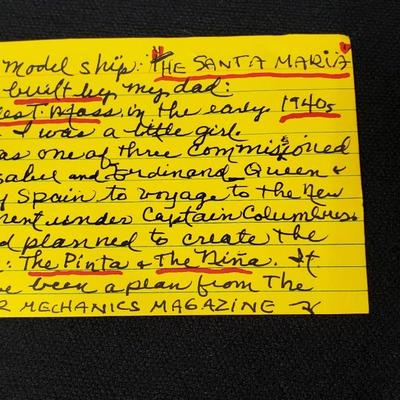 Model ship: THE SANTA MARIA
built by my dad:
est. Mass. in the early 1940s
I was a little girl.
as one of three commissioned
sabel and Ferdinand Queen &
Spain to voyage to the New
nent under Captain Columbus.
d planned to create the
: The Pinta & The Niña. It
ve been a plan from The
R MECHANICS MAGAZINE